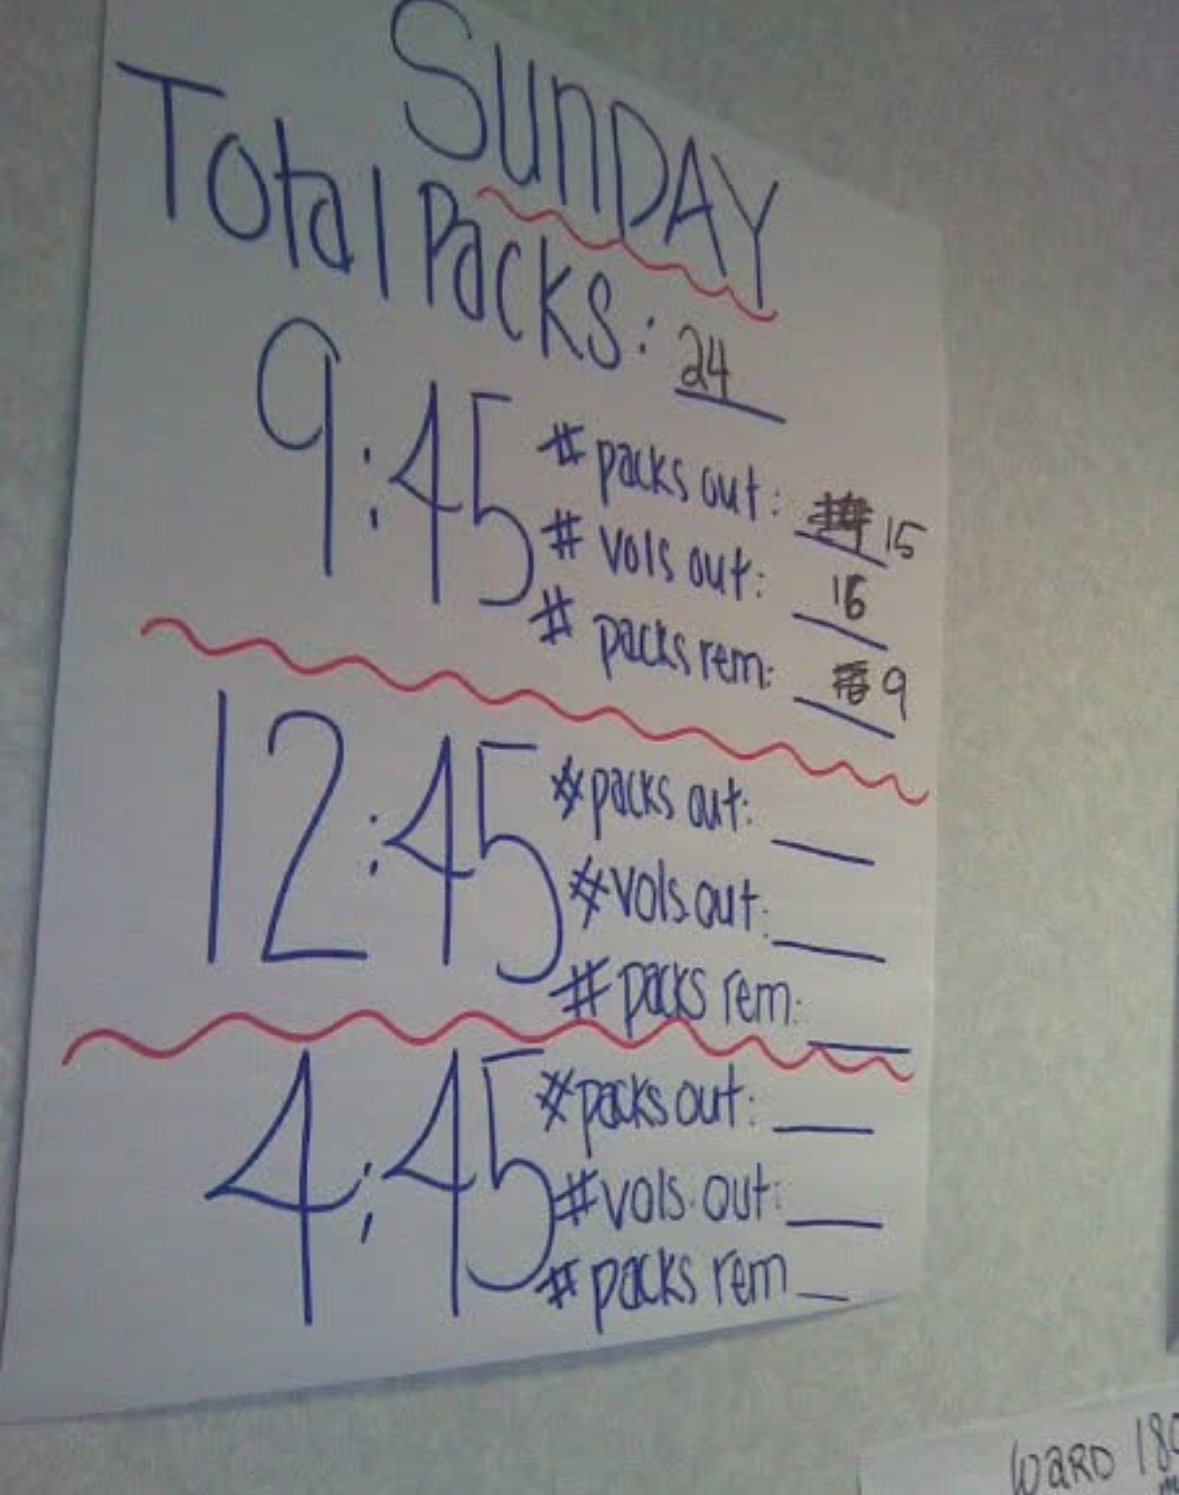 SunDAY
Total Packs: 24
9:45
# packs out: 15
# vols out: 16
# packs rem: 9
12:45
# packs out:
# vols out:
# packs rem:
4:45
# packs out:
# vols. out:
# packs rem
WARD